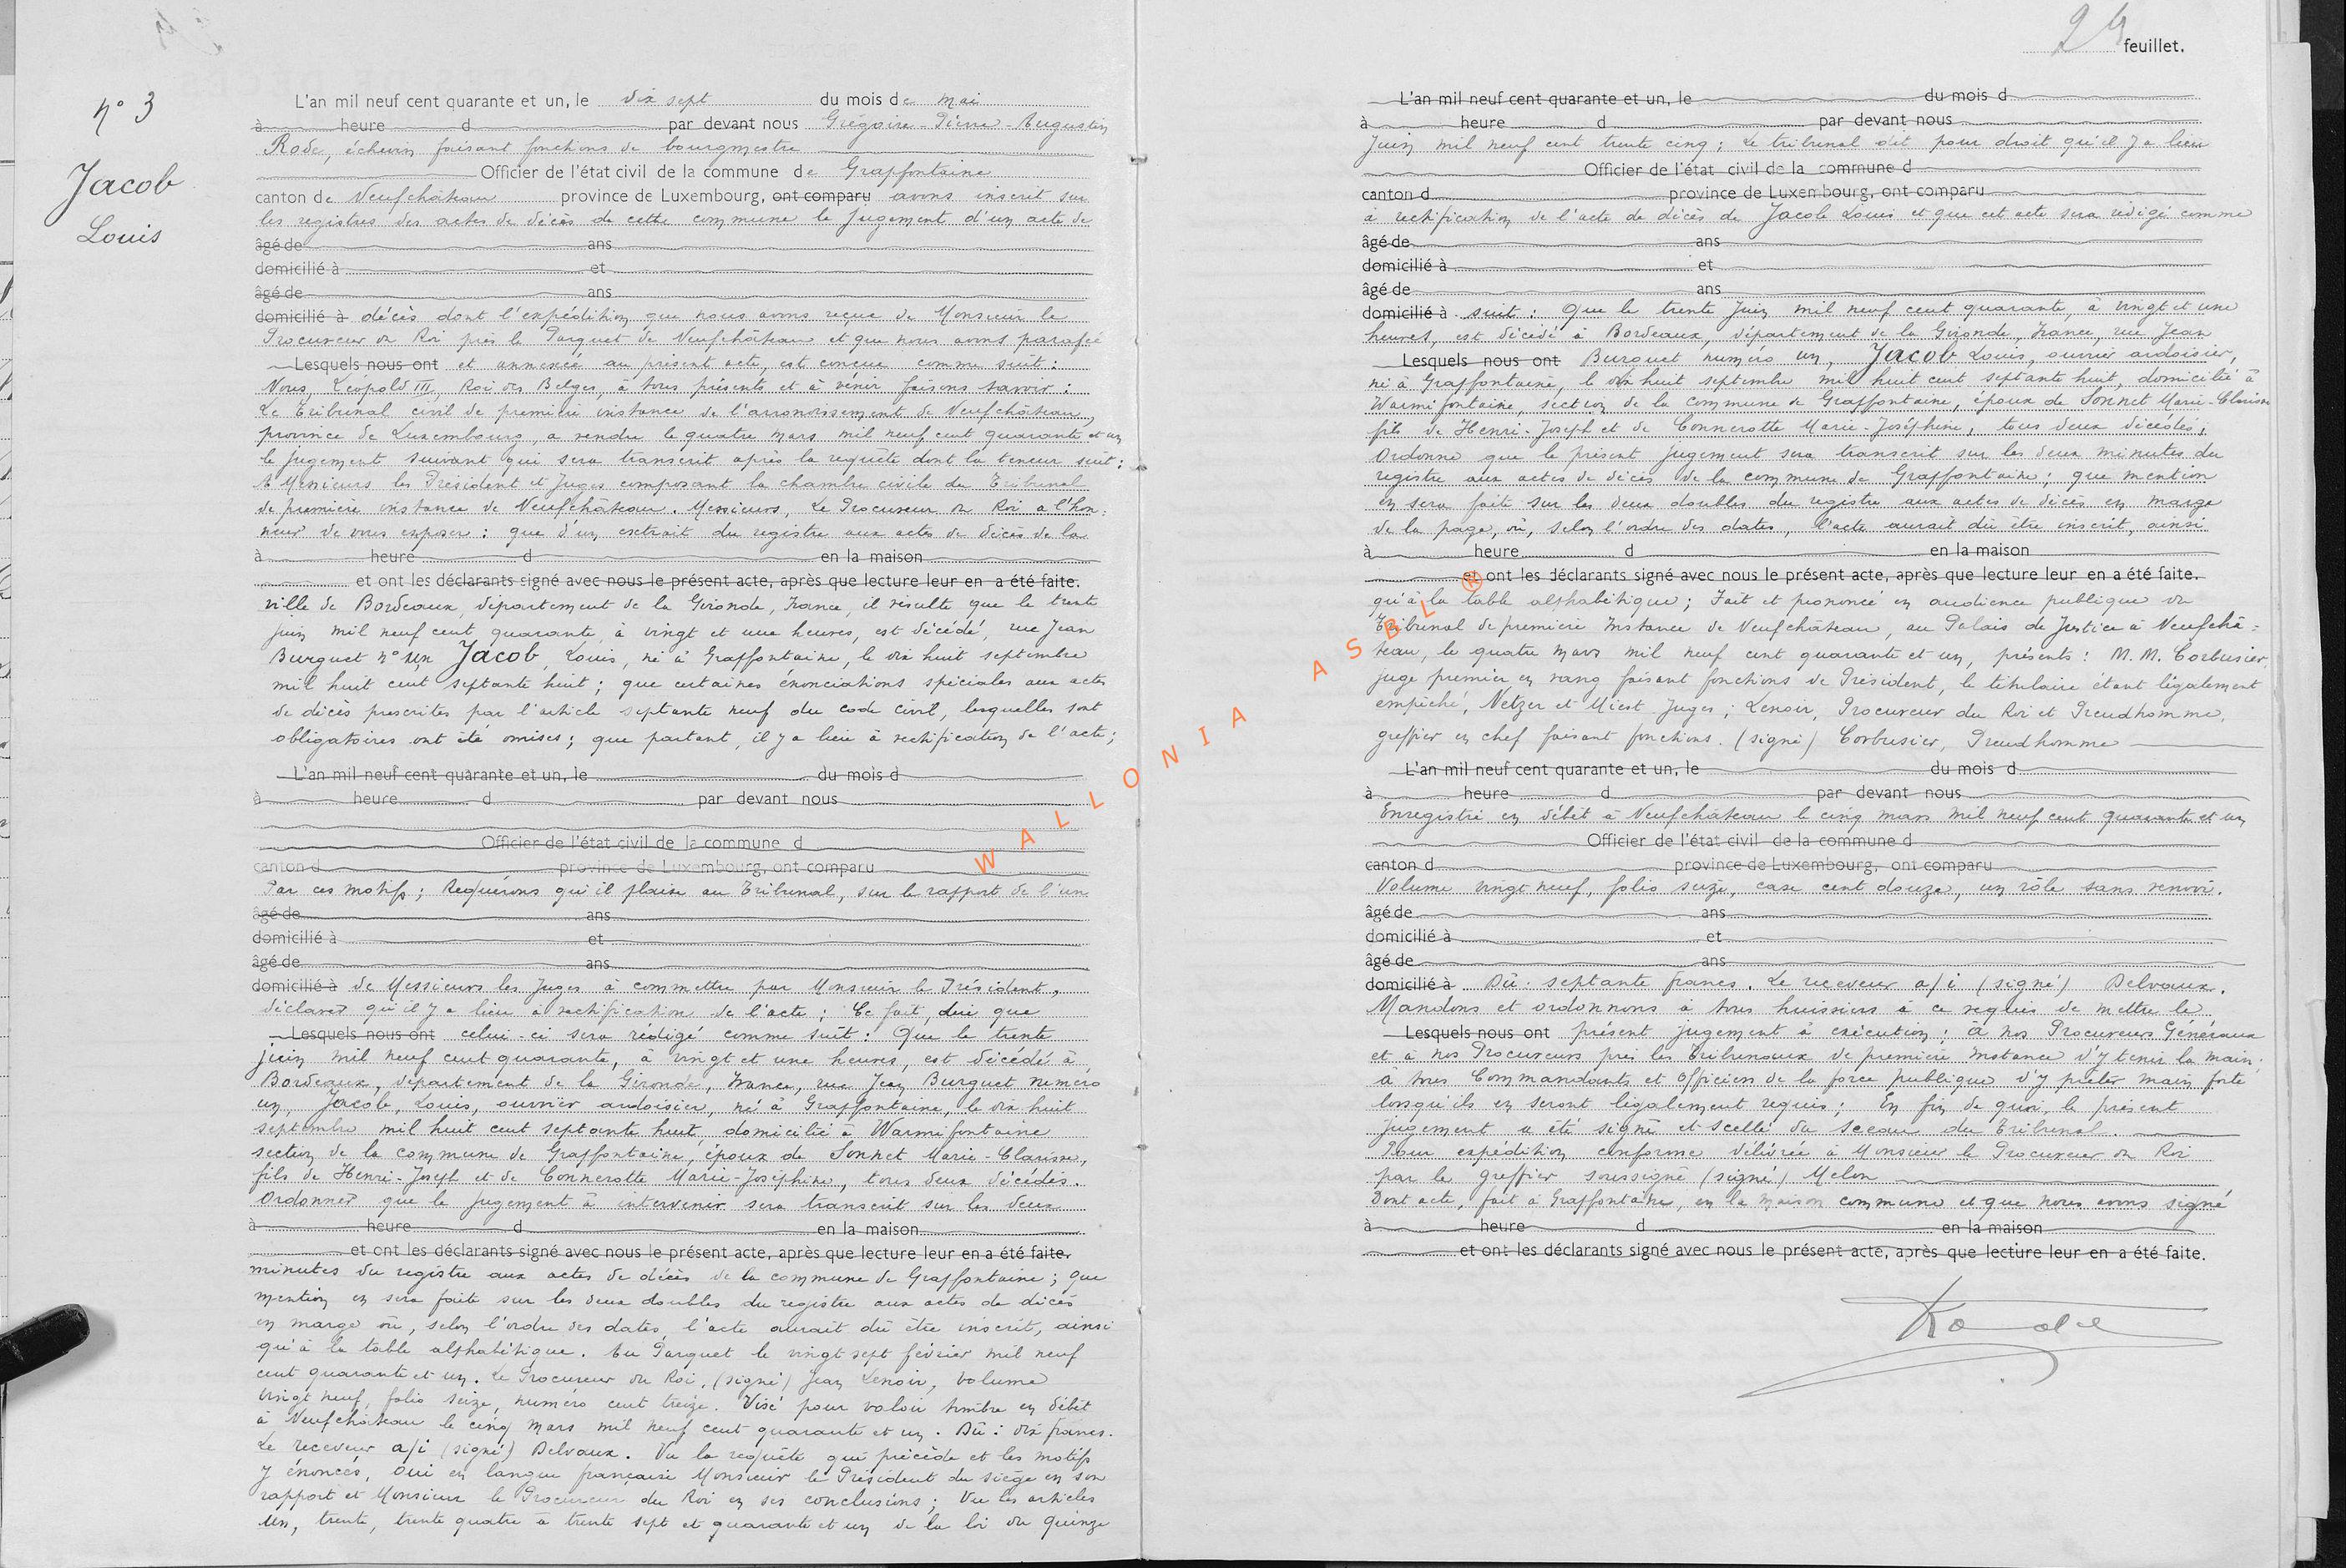 n° 3
Jacob
Louis
L'an mil neuf cent quarante et un, le dix sept du mois de mai
à heure d par devant nous Grégoire-Pierre-Augustin
Rode, échevin faisant fonctions de bourgmestre
Officier de l'état civil de la commune de Grapfontaine
canton de Neufchâteau province de Luxembourg, ont comparu avons inscrit sur
les registres des actes de décès de cette commune le jugement d'un acte de
âgé de ans
domicilié à et
âgé de ans
domicilié à décès dont l'expédition que nous avons reçue de Monsieur le
Procureur du Roi près le Parquet de Neufchâteau et que nous avons parafée
Lesquels nous ont et annexée au présent acte, est conçue comme suit :
Nous, Léopold III, Roi des Belges, à tous présents et à venir faisons savoir :
Le Tribunal civil de première instance de l'arrondissement de Neufchâteau,
province de Luxembourg, a rendu le quatre mars mil neuf cent quarante et un
le jugement suivant qui sera transcrit après la requête dont la teneur suit :
A Messieurs les Président et Juges composant la chambre civile du Tribunal
de première instance de Neufchâteau. Messieurs, Le Procureur du Roi a l'hon-
neur de vous exposer : que d'un extrait du registre aux actes de décès de la
à heure d en la maison
et ont les déclarants signé avec nous le présent acte, après que lecture leur en a été faite.
ville de Bordeaux, département de la Gironde, France, il résulte que le trente
juin mil neuf cent quarante, à vingt et une heures, est décédé, rue Jean
Burguet n° un Jacob, Louis, né à Grapfontaine, le dix huit septembre
mil huit cent septante huit ; que certaines énonciations spéciales aux actes
de décès prescrites par l'article septante neuf du code civil, lesquelles sont
obligatoires ont été omises ; que partant, il y a lieu à rectification de l'acte ;
L'an mil neuf cent quarante et un, le du mois d
à heure d par devant nous
Officier de l'état civil de la commune d
canton d province de Luxembourg, ont comparu
Par ces motifs ; Requérons qu'il plaise au Tribunal, sur le rapport de l'un
âgé de ans
domicilié à et
âgé de ans
domicilié à de Messieurs les Juges à commettre par Monsieur le Président,
déclarer qu'il y a lieu à rectification de l'acte ; Ce fait, dire que
Lesquels nous ont celui-ci sera rédigé comme suit : Que le trente
juin mil neuf cent quarante, à vingt et une heures, est décédé à
Bordeaux, département de la Gironde, France, rue Jean Burguet numéro
un, Jacob, Louis, ouvrier ardoisier, né à Grapfontaine, le dix huit
septembre mil huit cent septante huit, domicilié à Warmifontaine
section de la commune de Grapfontaine, époux de Sonnet Marie-Clarisse,
fils de Henri-Joseph et de Connerotte Marie-Joséphine, tous deux décédés.
Ordonner que le jugement à intervenir sera transcrit sur les deux
à heure d en la maison
et ont les déclarants signé avec nous le présent acte, après que lecture leur en a été faite.
minutes du registre aux actes de décès de la commune de Grapfontaine ; que
mention en sera faite sur les deux doubles du registre aux actes de décès
en marge où, selon l'ordre des dates, l'acte aurait dû être inscrit, ainsi
qu'à la table alphabétique. Au Parquet le vingt sept février mil neuf
cent quarante et un. Le Procureur du Roi, (signé) Jean Lenoir, Volume
vingt neuf, folio seize, numéro cent treize. Visé pour valoir timbre en débit
à Neufchâteau le cinq mars mil neuf cent quarante et un. Dû : dix francs.
Le receveur a/i (signé) Delvaux. Vu la requête qui précède et les motifs
y énoncés, Oui en langue française Monsieur le Président du siège en son
rapport et Monsieur le Procureur du Roi en ses conclusions ; Vu les articles
un, trente, trente quatre à trente sept et quarante et un de la loi du quinze
24 feuillet.
L'an mil neuf cent quarante et un, le du mois d
à heure d par devant nous
Juin mil neuf cent trente cinq ; Le tribunal dit pour droit qu'il y a lieu
Officier de l'état civil de la commune d
canton d province de Luxembourg, ont comparu
à rectification de l'acte de décès de Jacob Louis et que cet acte sera rédigé comme
âgé de ans
domicilié à et
âgé de ans
domicilié à suit : Que le trente Juin mil neuf cent quarante, à vingt et une
heures, est décédé à Bordeaux, département de la Gironde, France, rue Jean
Lesquels nous ont Burguet numéro un, Jacob Louis, ouvrier ardoisier,
né à Grapfontaine, le dix huit septembre mil huit cent septante huit, domicilié à
Warmifontaine, section de la commune de Grapfontaine, époux de Sonnet Marie-Clarisse
fils de Henri-Joseph et de Connerotte Marie-Joséphine, tous deux décédés,
Ordonne que le présent jugement sera transcrit sur les deux minutes du
registre aux actes de décès de la commune de Grapfontaine ; que mention
en sera faite sur les deux doubles du registre aux actes de décès en marge
de la page, où, selon l'ordre des dates, l'acte aurait dû être inscrit, ainsi
à heure d en la maison
et ont les déclarants signé avec nous le présent acte, après que lecture leur en a été faite.
qu'à la table alphabétique ; Fait et prononcé en audience publique du
Tribunal de première Instance de Neufchâteau, au Palais de Justice à Neufchâ-
teau, le quatre mars mil neuf cent quarante et un, présents : M.M. Corbusier,
juge premier en rang faisant fonctions de Président, le titulaire étant légalement
empêché, Netzer et Miest Juges ; Lenoir, Procureur du Roi et Preudhomme,
greffier en chef faisant fonctions. (signé) Corbusier, Preudhomme
L'an mil neuf cent quarante et un, le du mois d
à heure d par devant nous
Enregistré en débit à Neufchâteau le cinq mars mil neuf cent quarante et un
Officier de l'état civil de la commune d
canton d province de Luxembourg, ont comparu
Volume vingt neuf, folio seize, case cent douze, un rôle sans renvoi.
âgé de ans
domicilié à et
âgé de ans
domicilié à Dû : septante francs. Le receveur a/i (signé) Delvaux.
Mandons et ordonnons à tous huissiers à ce requis de mettre le
Lesquels nous ont présent jugement à exécution ; à nos Procureurs Généraux
et à nos Procureurs près les Tribunaux de première Instance d'y tenir la main ;
à tous Commandants et Officiers de la force publique d'y prêter main forte
lorsqu'ils en seront légalement requis ; En fin de quoi, le présent
jugement a été signé et scellé du sceau du Tribunal.
Pour expédition conforme délivrée à Monsieur le Procureur du Roi
par le greffier soussigné (signé) Melon
Dont acte, fait à Grapfontaine, en la maison commune et que nous avons signé
à heure d en la maison
et ont les déclarants signé avec nous le présent acte, après que lecture leur en a été faite.
Rode
WALLONIA ASBL ®